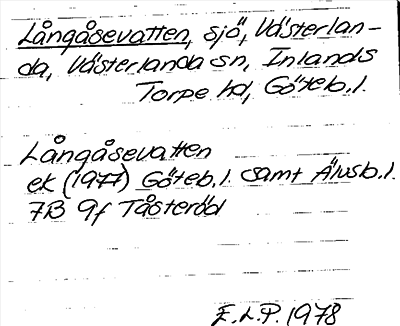 Långåsevatten, sjö, Västerlan-
da, Västerlanda sn, Inlands
Torpe hd, Göteb. l.
Långåsevatten
ek (1977) Göteb. l. samt Älvsb. l.
7B 9f Tåsteröd
E.L.P. 1978